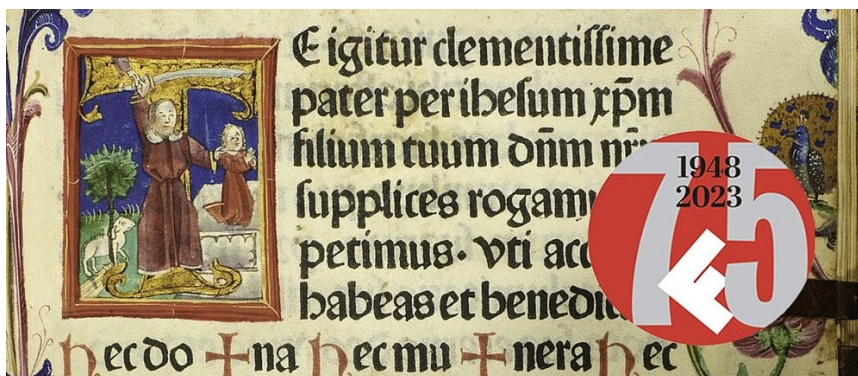 TE igitur clementiſſime
pater per iheſum xp̄m
filium tuum dn̄m nr̄u
ſupplices rogamu
petimus· vti acc
habeas et benedic
hec do + na hec mu + nera hec
75
1948
2023